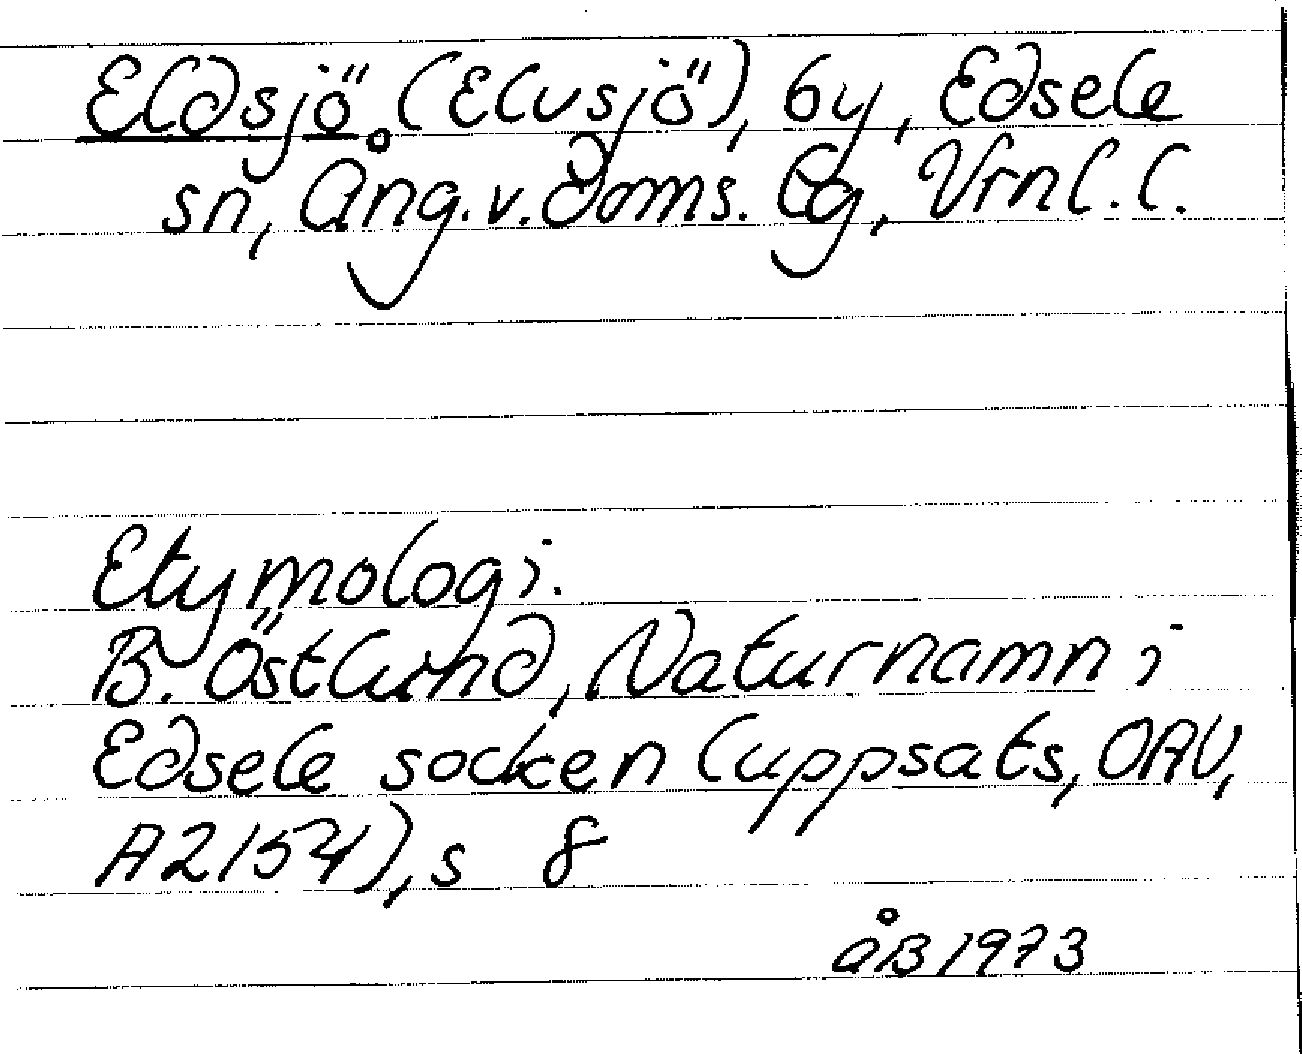 Eldsjö (Elvsjö), by, Edsele
sn, Ång.v.doms. lg, Vrnl.l.
Etymologi.
B. Östlund, Naturnamn i
Edsele socken (uppsats, OAU,
A2154), s 8
ÅB 1973